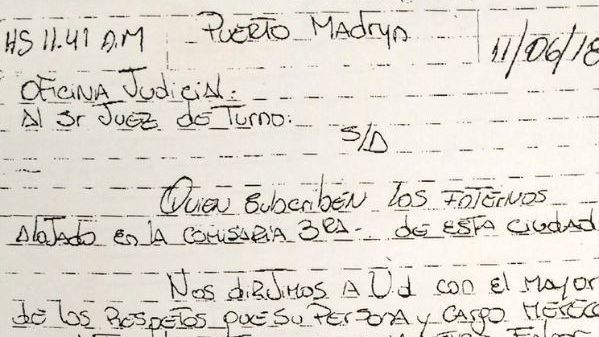 HS 11.41 A.M Puerto Madryn 11/06/18
Oficina Judicial:
Al Sr Juez de Turno:
S/D
Quien subscriben los internos
alojado en la comisaria 3ra- de esta ciudad
Nos dirijimos a Ud con el mayor
de los Respetos que su persona y cargo